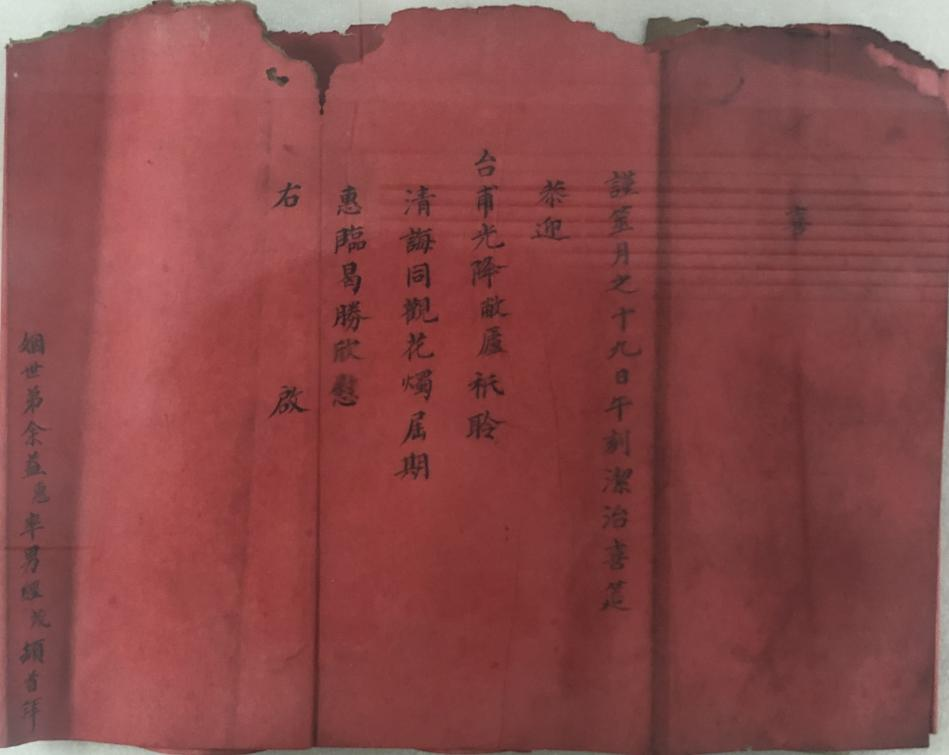 喜
謹筮月之十九日午刻潔治喜筵
恭迎
台甫光降敝廬祇聆
清誨同觀花燭屆期
惠臨曷勝欣慰
右啟
姻世弟余益惠率男經茂頓首拜